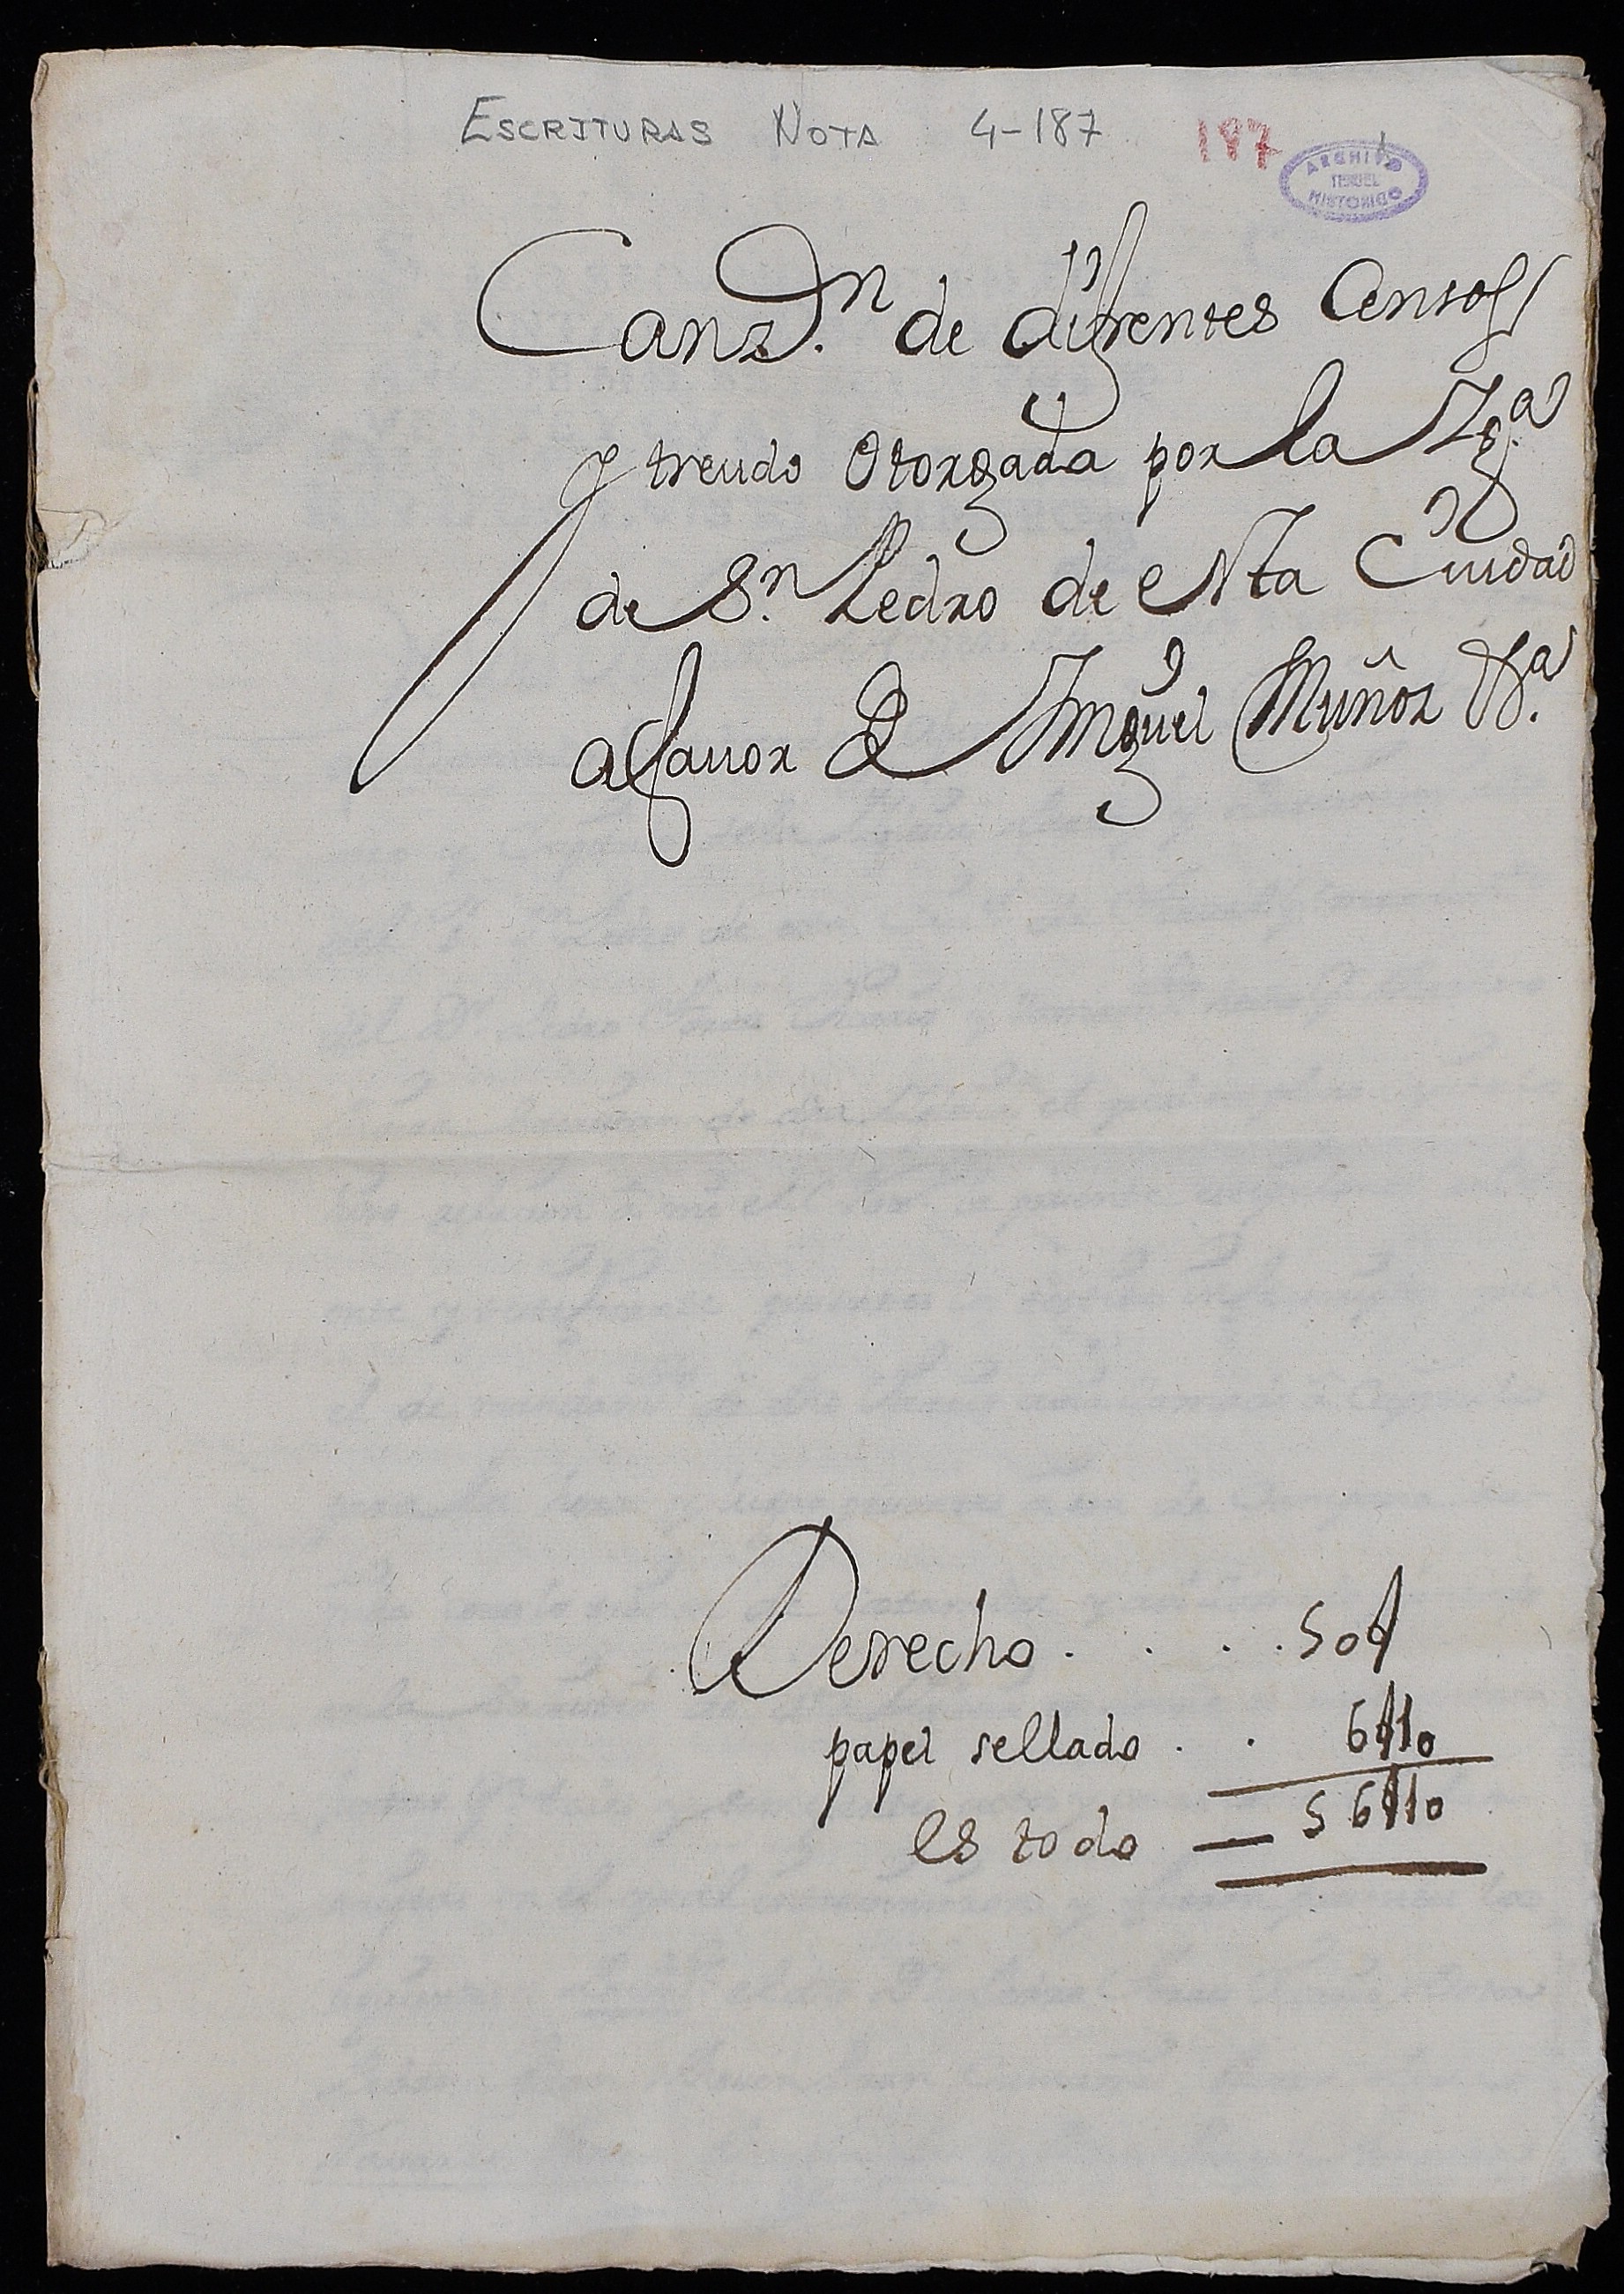 ESCRITURAS NOTA 4-187 187
ARCHIVO
TERUEL
HISTORICO
Canz.n de difrentes Censos
y treudo Otorgada por la Ig.a
de S.n Pedro de esta Ciudad
afauor de Miguel Muñoz
Derecho . . . . 50
papel sellado . . 6//10
es todo — 56//10